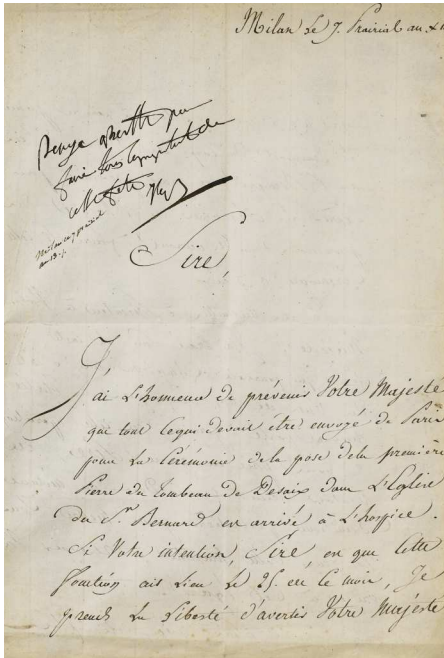 Milan Le 7. Prairial an. X
Renvoyé
faire tous
cette fête Nap
Milan ce 7 prairial
an 13.
Sire,
J'ai L'honneur de prévenir Votre Majesté
que tout ce qui devait être envoyé de Paris
pour La Cérémonie de la pose de la première
Pierre du tombeau de Desaix dans L'Eglise
du St. Bernard en arrivé à L'hospice.
Si Votre intention, Sire, en que cette
fonction ait Lieu Le 25. de Ce mois, Je
prends La Liberté d'avertir Votre Majesté